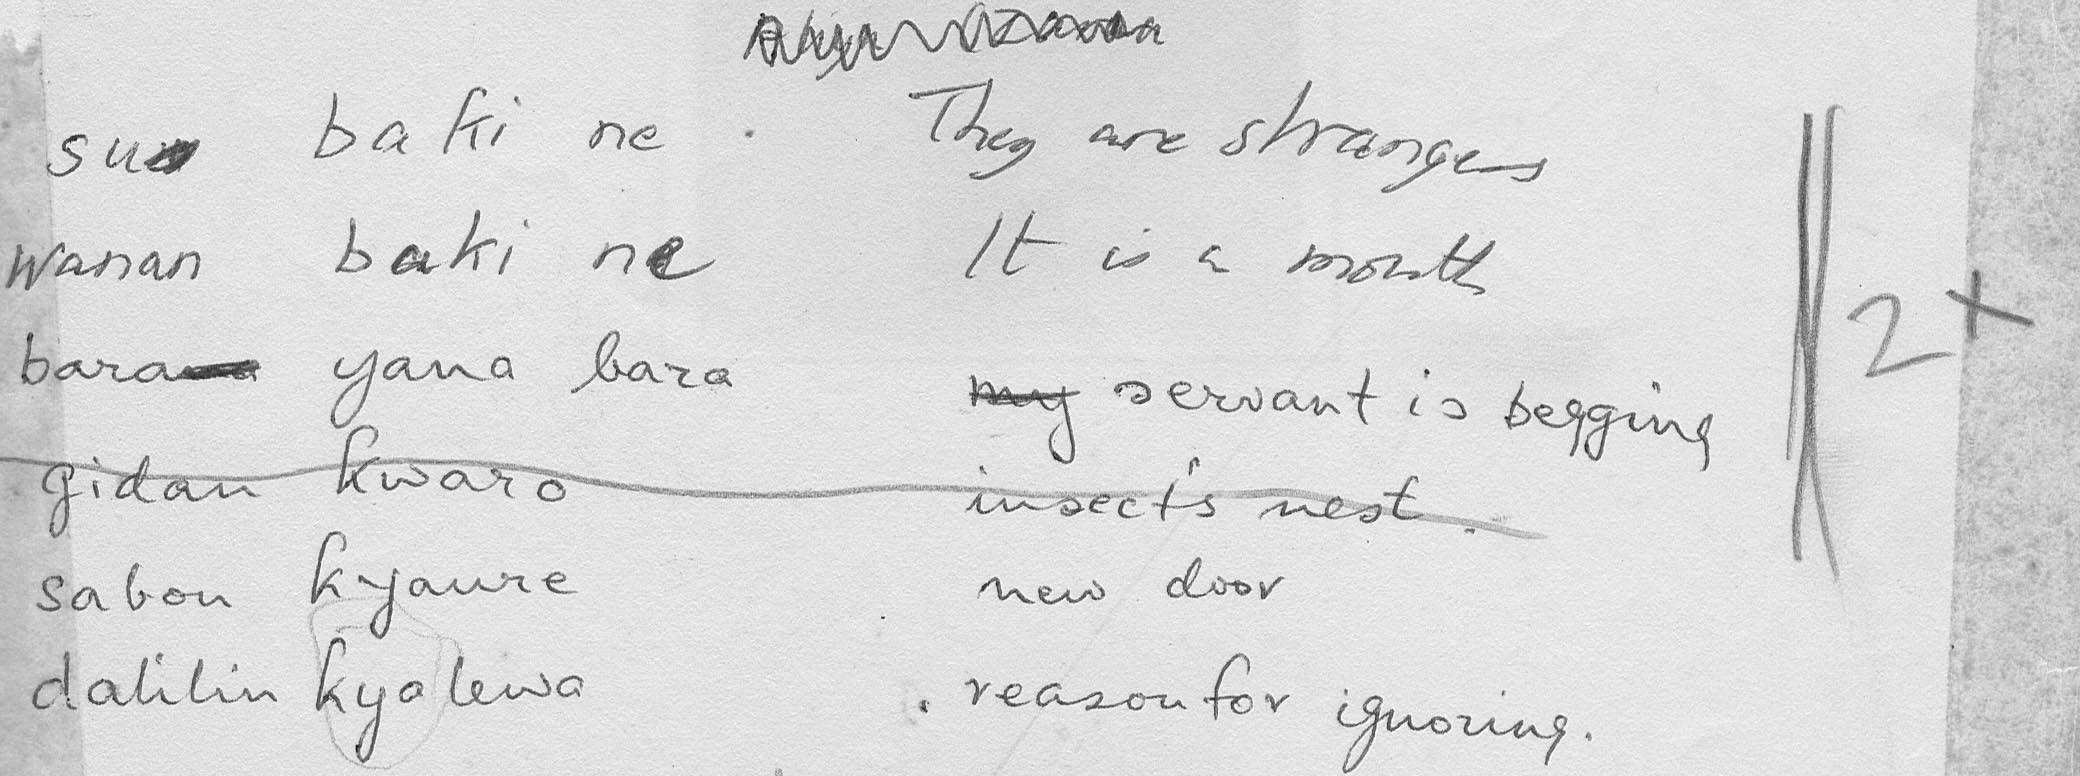 su baki ne . They are strangers
wanan baki ne It is a mouth
bara yana bara my servant is begging
gidan kwaro insect's nest.
sabon kyaure new door
dalilin kyalewa . reason for ignoring.
2x